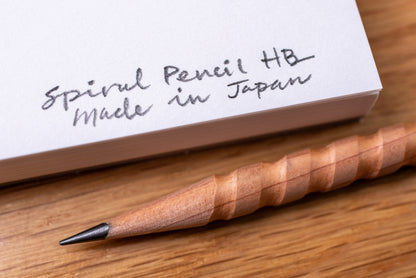 Spiral Pencil HB
Made in Japan